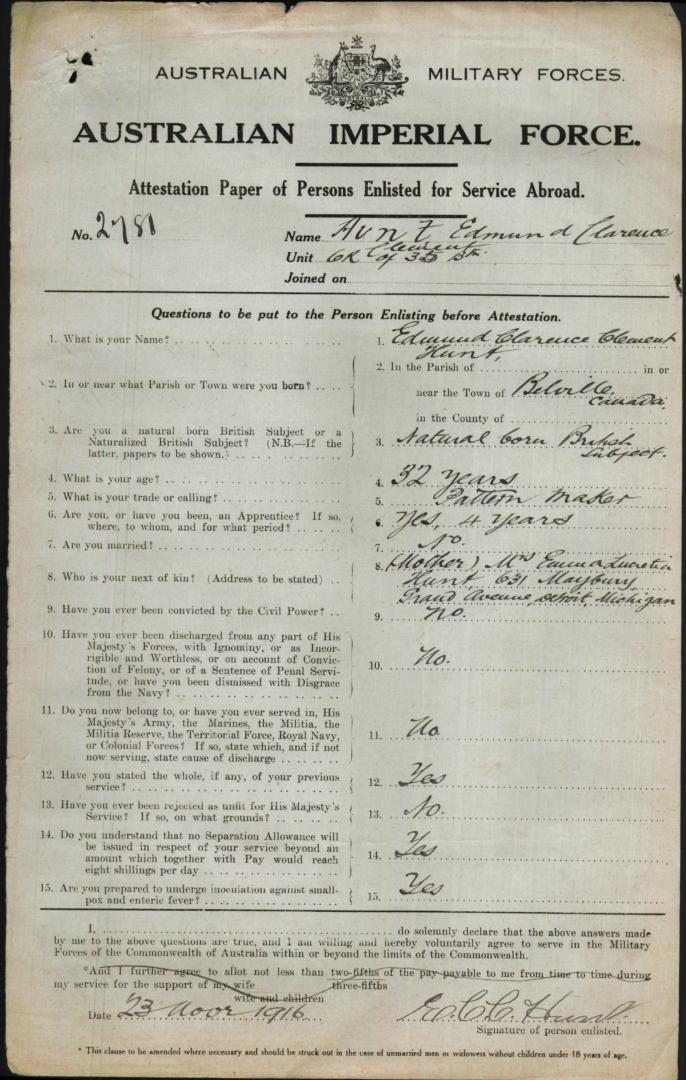 AUSTRALIAN MILITARY FORCES.
AUSTRALIAN IMPERIAL FORCE.
Attestation Paper of Persons Enlisted for Service Abroad.
No. 2781
Name Hunt Edmund Clarence
Clement
Unit 6R of 35 Bn.
Joined on
Questions to be put to the Person Enlisting before Attestation.
1. What is your Name? 1. Edmund Clarence Clement
Hunt,
2. In or near what Parish or Town were you born? 2. In the Parish of in or
near the Town of Belville,
Canada.
in the County of
3. Are you a natural born British Subject or a
Naturalized British Subject? (N.B.—If the
latter, papers to be shown.) 3. Natural born British
Subject.
4. What is your age? 4. 32 years
5. What is your trade or calling? 5. Pattern maker
6. Are you, or have you been, an Apprentice? If so,
where, to whom, and for what period? 6. Yes, 4 years
7. Are you married? 7. No.
8. Who is your next of kin? (Address to be stated) 8. (Mother) Mrs Emma Lucretia
Hunt, 631 Maybury
Grand Avenue, Detroit, Michigan
9. Have you ever been convicted by the Civil Power? 9. No.
10. Have you ever been discharged from any part of His
Majesty's Forces, with Ignominy, or as Incor-
rigible and Worthless, or on account of Convic-
tion of Felony, or of a Sentence of Penal Servi-
tude, or have you been dismissed with Disgrace
from the Navy? 10. No.
11. Do you now belong to, or have you ever served in, His
Majesty's Army, the Marines, the Militia, the
Militia Reserve, the Territorial Force, Royal Navy,
or Colonial Forces? If so, state which, and if not
now serving, state cause of discharge 11. No
12. Have you stated the whole, if any, of your previous
service? 12. Yes
13. Have you ever been rejected as unfit for His Majesty's
Service? If so, on what grounds? 13. No.
14. Do you understand that no Separation Allowance will
be issued in respect of your service beyond an
amount which together with Pay would reach
eight shillings per day 14. Yes
15. Are you prepared to undergo inoculation against small-
pox and enteric fever? 15. Yes
I, do solemnly declare that the above answers made
by me to the above questions are true, and I am willing and hereby voluntarily agree to serve in the Military
Forces of the Commonwealth of Australia within or beyond the limits of the Commonwealth.
*And I further agree to allot not less than two-fifths of the pay payable to me from time to time during
three-fifths
my service for the support of my wife
wife and children
Date 23 Novr 1916 E.C.C. Hunt.
Signature of person enlisted.
* This clause to be amended where necessary and should be struck out in the case of unmarried men or widowers without children under 18 years of age.